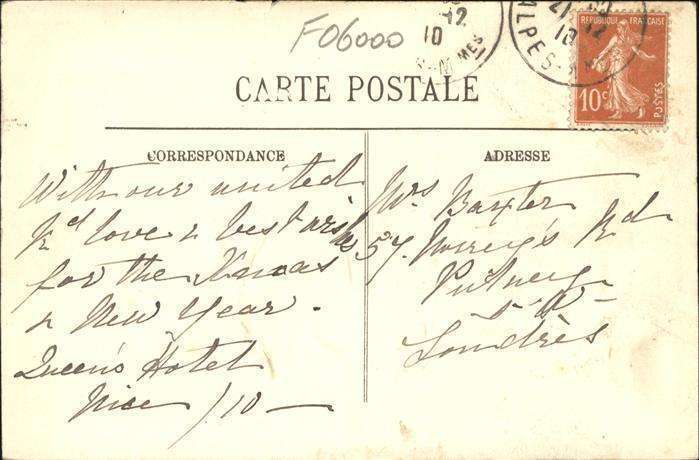 F06000
12
10
21
12
10
ALPES-
REPUBLIQUE FRANÇAISE
10c
POSTES
CARTE POSTALE
CORRESPONDANCE
With our united
Kd love & best wishes
for the Xmas
& New Year.
Queen's Hotel
Nice /10 —
ADRESSE
Mrs Baxter
57, Rd
Putney
S. W—
Londrès